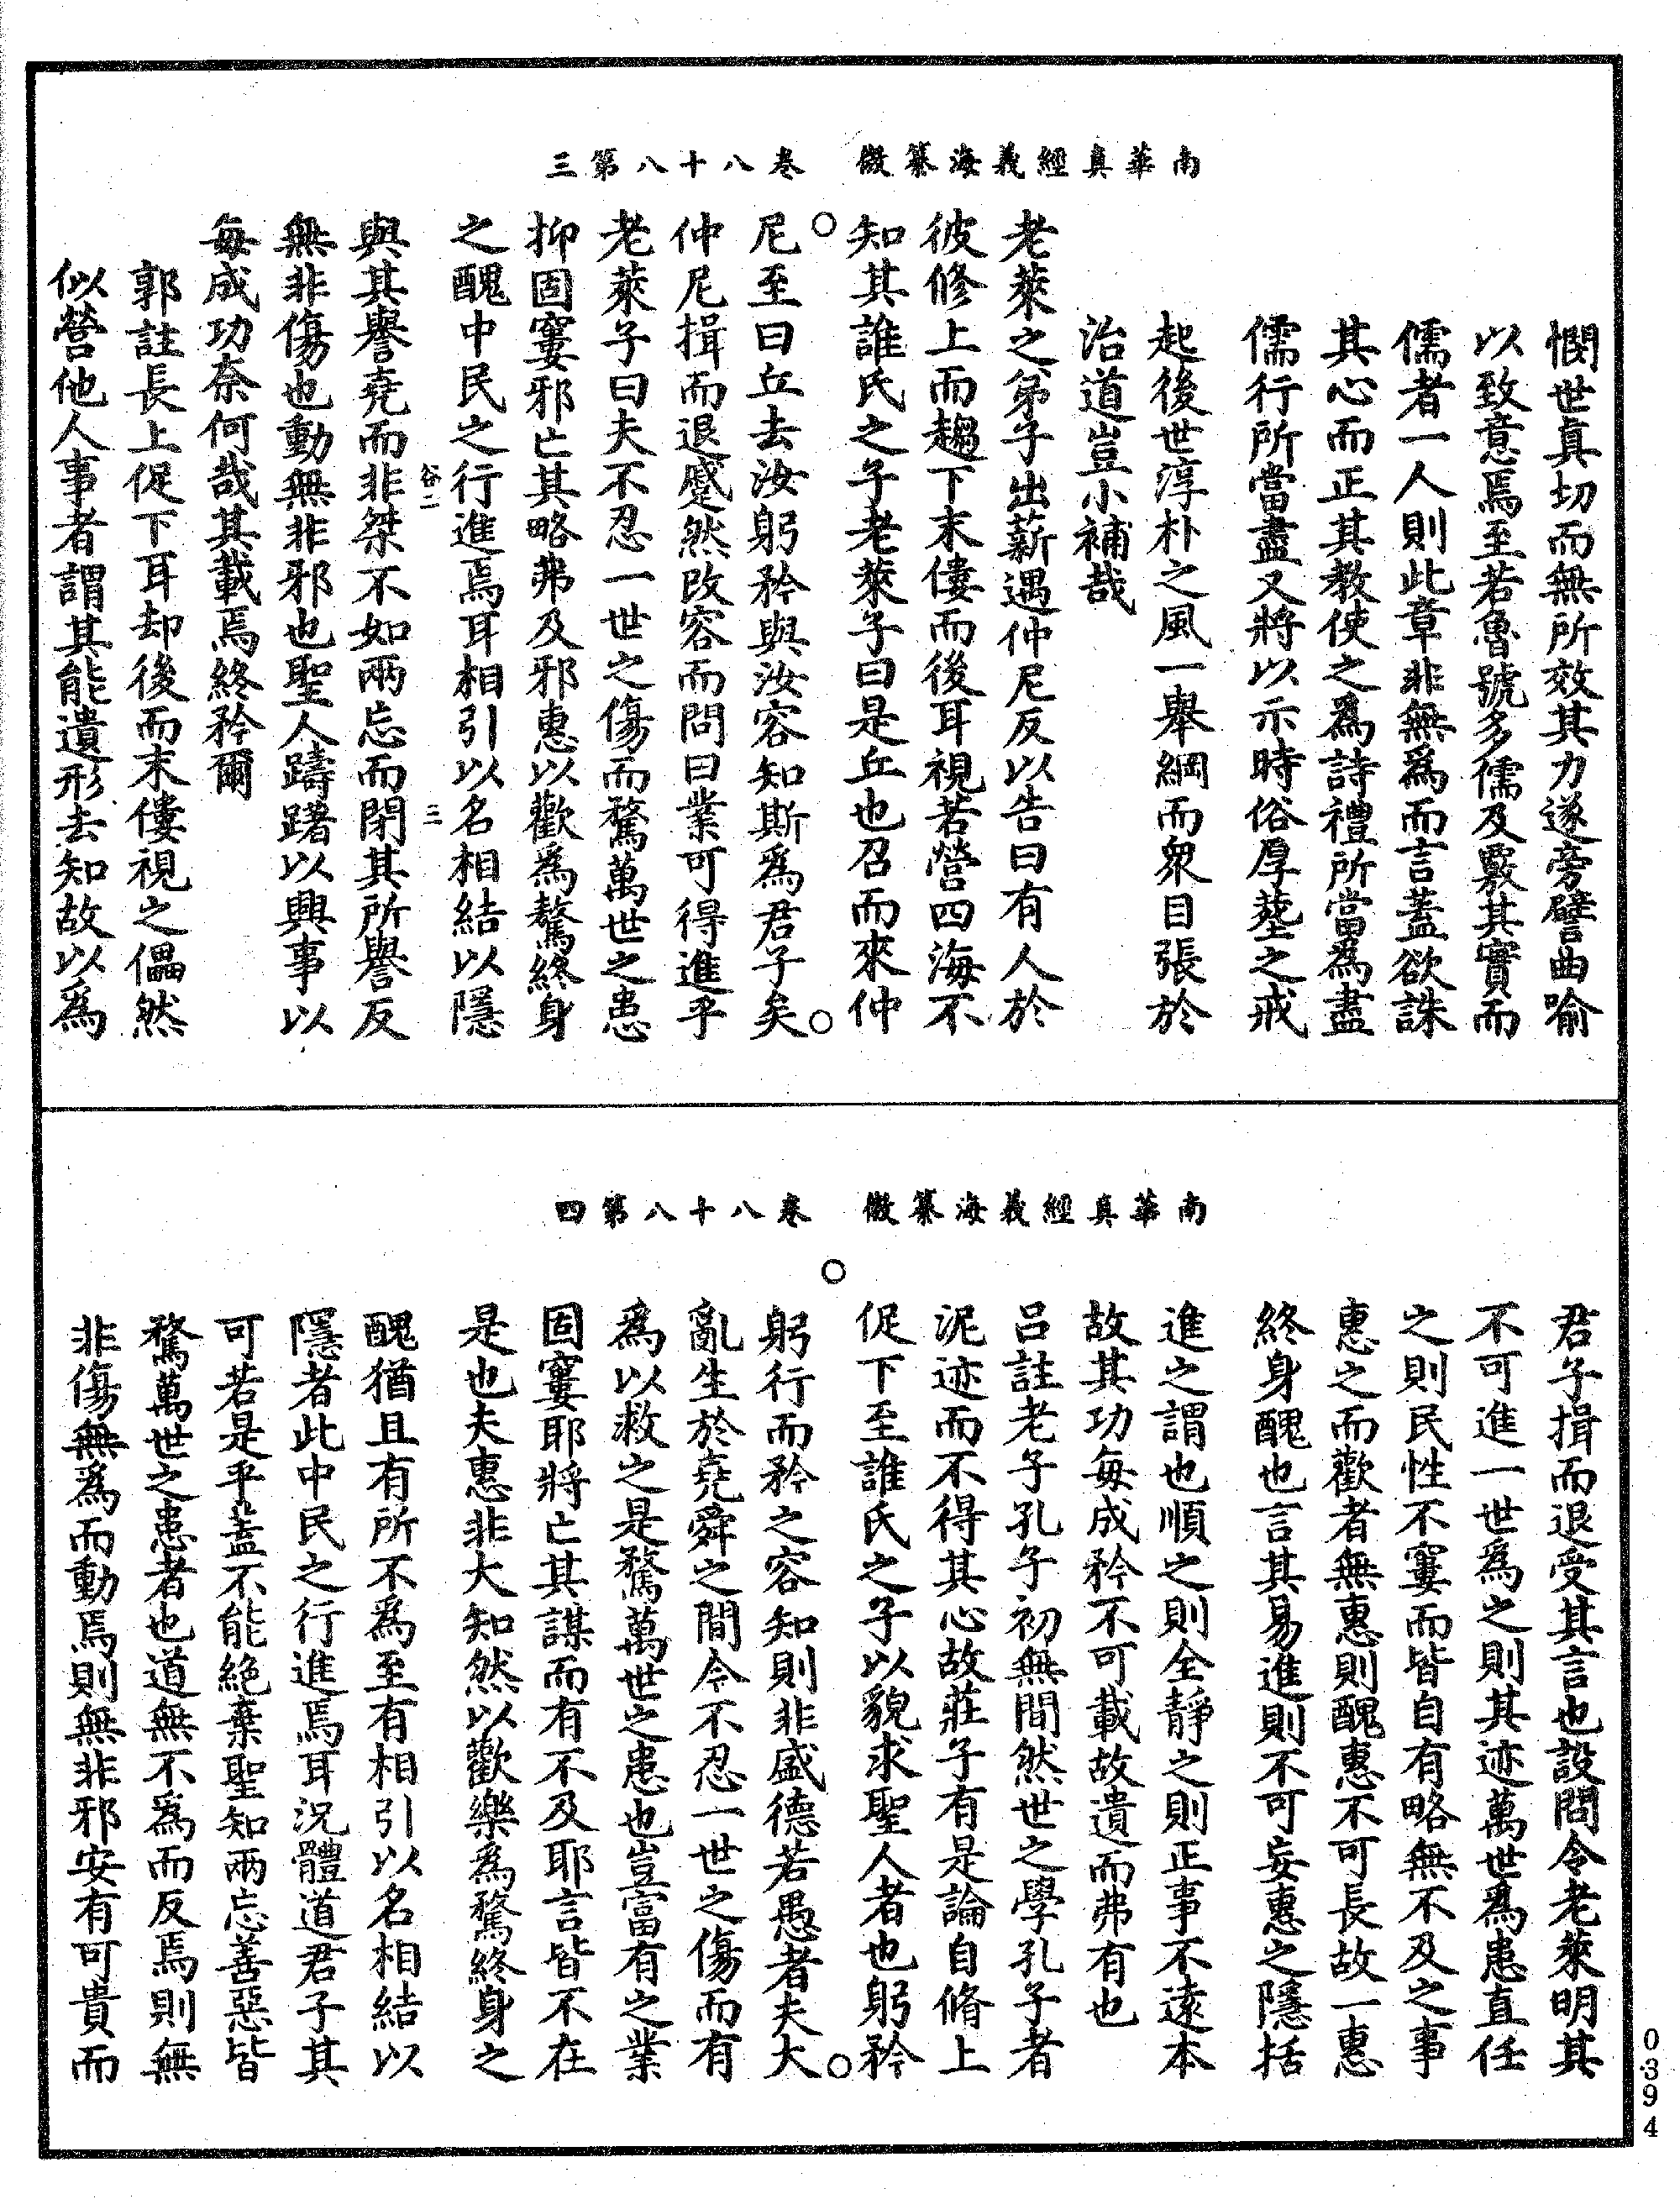 南華真經義海纂微　卷八十八第三
憫世真切而無所效其力遂旁譬曲喻
以致意焉至若魯號多儒及覈其實而
儒者一人則此章非無為而言蓋欲誅
其心而正其教使之為詩禮所當為盡
儒行所當盡又將以示時俗厚塟之戒
起後世淳朴之風一舉綱而衆目張於
治道豈小補哉
老萊之弟子出薪遇仲尼反以告曰有人於
彼修上而趨下末僂而後耳視若營四海不
知其誰氏之子老萊子曰是丘也召而來仲
尼至曰丘去汝躬矜與汝容知斯為君子矣
仲尼揖而退蹙然改容而問曰業可得進乎
老萊子曰夫不忍一世之傷而驁萬世之患
抑固窶邪亡其略弗及邪惠以歡為驁終身
之醜中民之行進焉耳相引以名相結以隱
谷二　三
與其譽堯而非桀不如兩忘而閉其所譽反
無非傷也動無非邪也聖人躊躇以興事以
每成功奈何哉其載焉終矜爾
郭註長上促下耳却後而末僂視之儡然
似營他人事者謂其能遺形去知故以為
南華真經義海纂微　卷八十八第四
君子揖而退受其言也設問令老萊明其
不可進一世為之則其迹萬世為患直任
之則民性不窶而皆自有略無不及之事
惠之而歡者無惠則醜惠不可長故一惠
終身醜也言其易進則不可妄惠之隱括
進之謂也順之則全靜之則正事不遠本
故其功每成矜不可載故遺而弗有也
呂註老子孔子初無間然世之學孔子者
泥迹而不得其心故莊子有是論自脩上
促下至誰氏之子以貌求聖人者也躬矜
躬行而矜之容知則非盛德若愚者夫大
亂生於堯舜之間今不忍一世之傷而有
為以救之是驁萬世之患也豈富有之業
固窶耶將亡其謀而有不及耶言皆不在
是也夫惠非大知然以歡樂為驁終身之
醜猶且有所不為至有相引以名相結以
隱者此中民之行進焉耳況體道君子其
可若是乎蓋不能絕棄聖知兩忘善惡皆
驁萬世之患者也道無不為而反焉則無
非傷無為而動焉則無非邪安有可貴而
0394